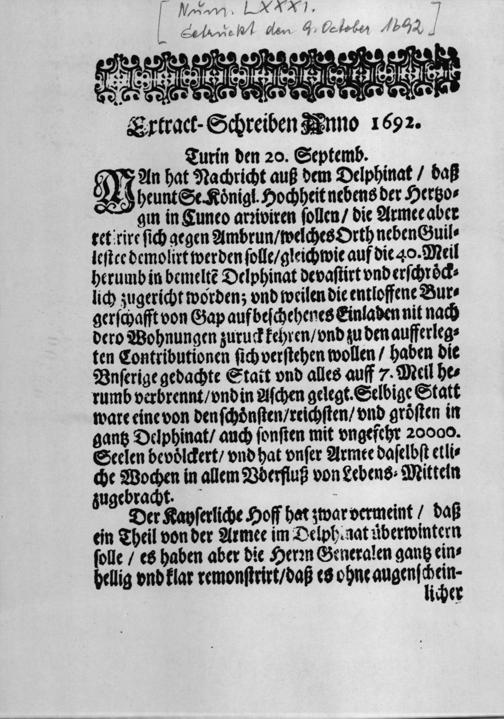 [ Num. LXXXI.
Gedruckt den 9. October 1692 ]
Extract-Schreiben Anno 1692.
Turin den 20. Septemb.
MAn hat Nachricht auß dem Delphinat / daß
heunt Se. Königl. Hochheit nebens der Hertzo-
gin in Cuneo arriviren sollen / die Armee aber
retirire sich gegen Ambrun / welches Orth neben Guil-
lestre demolirt werden solle / gleich wie auf die 40. Meil
herumb in bemeltē Delphinat devastirt vnd erschröck-
lich zugericht worden; vnd weilen die entloffene Bur-
gerschafft von Gap auf beschehenes Einladen nit nach
dero Wohnungen zuruck kehren / vnd zu den aufferleg-
ten Contributionen sich verstehen wollen / haben die
Vnserige gedachte Statt vnd alles auff 7. Meil he-
rumb verbrennt / vnd in Aschen gelegt. Selbige Statt
ware eine von den schönsten / reichsten / vnd grösten in
gantz Delphinat / auch sonsten mit vngefehr 20000.
Seelen bevölckert / vnd hat vnser Armee daselbst etli-
che Wochen in allem Vberfluß von Lebens-Mitteln
zugebracht.
Der Kayserliche Hoff hat zwar vermeint / daß
ein Theil von der Armee im Delphinat überwintern
solle / es haben aber die Herrn Generalen gantz ein-
hellig vnd klar remonstrirt / daß es ohne augenschein-
licher